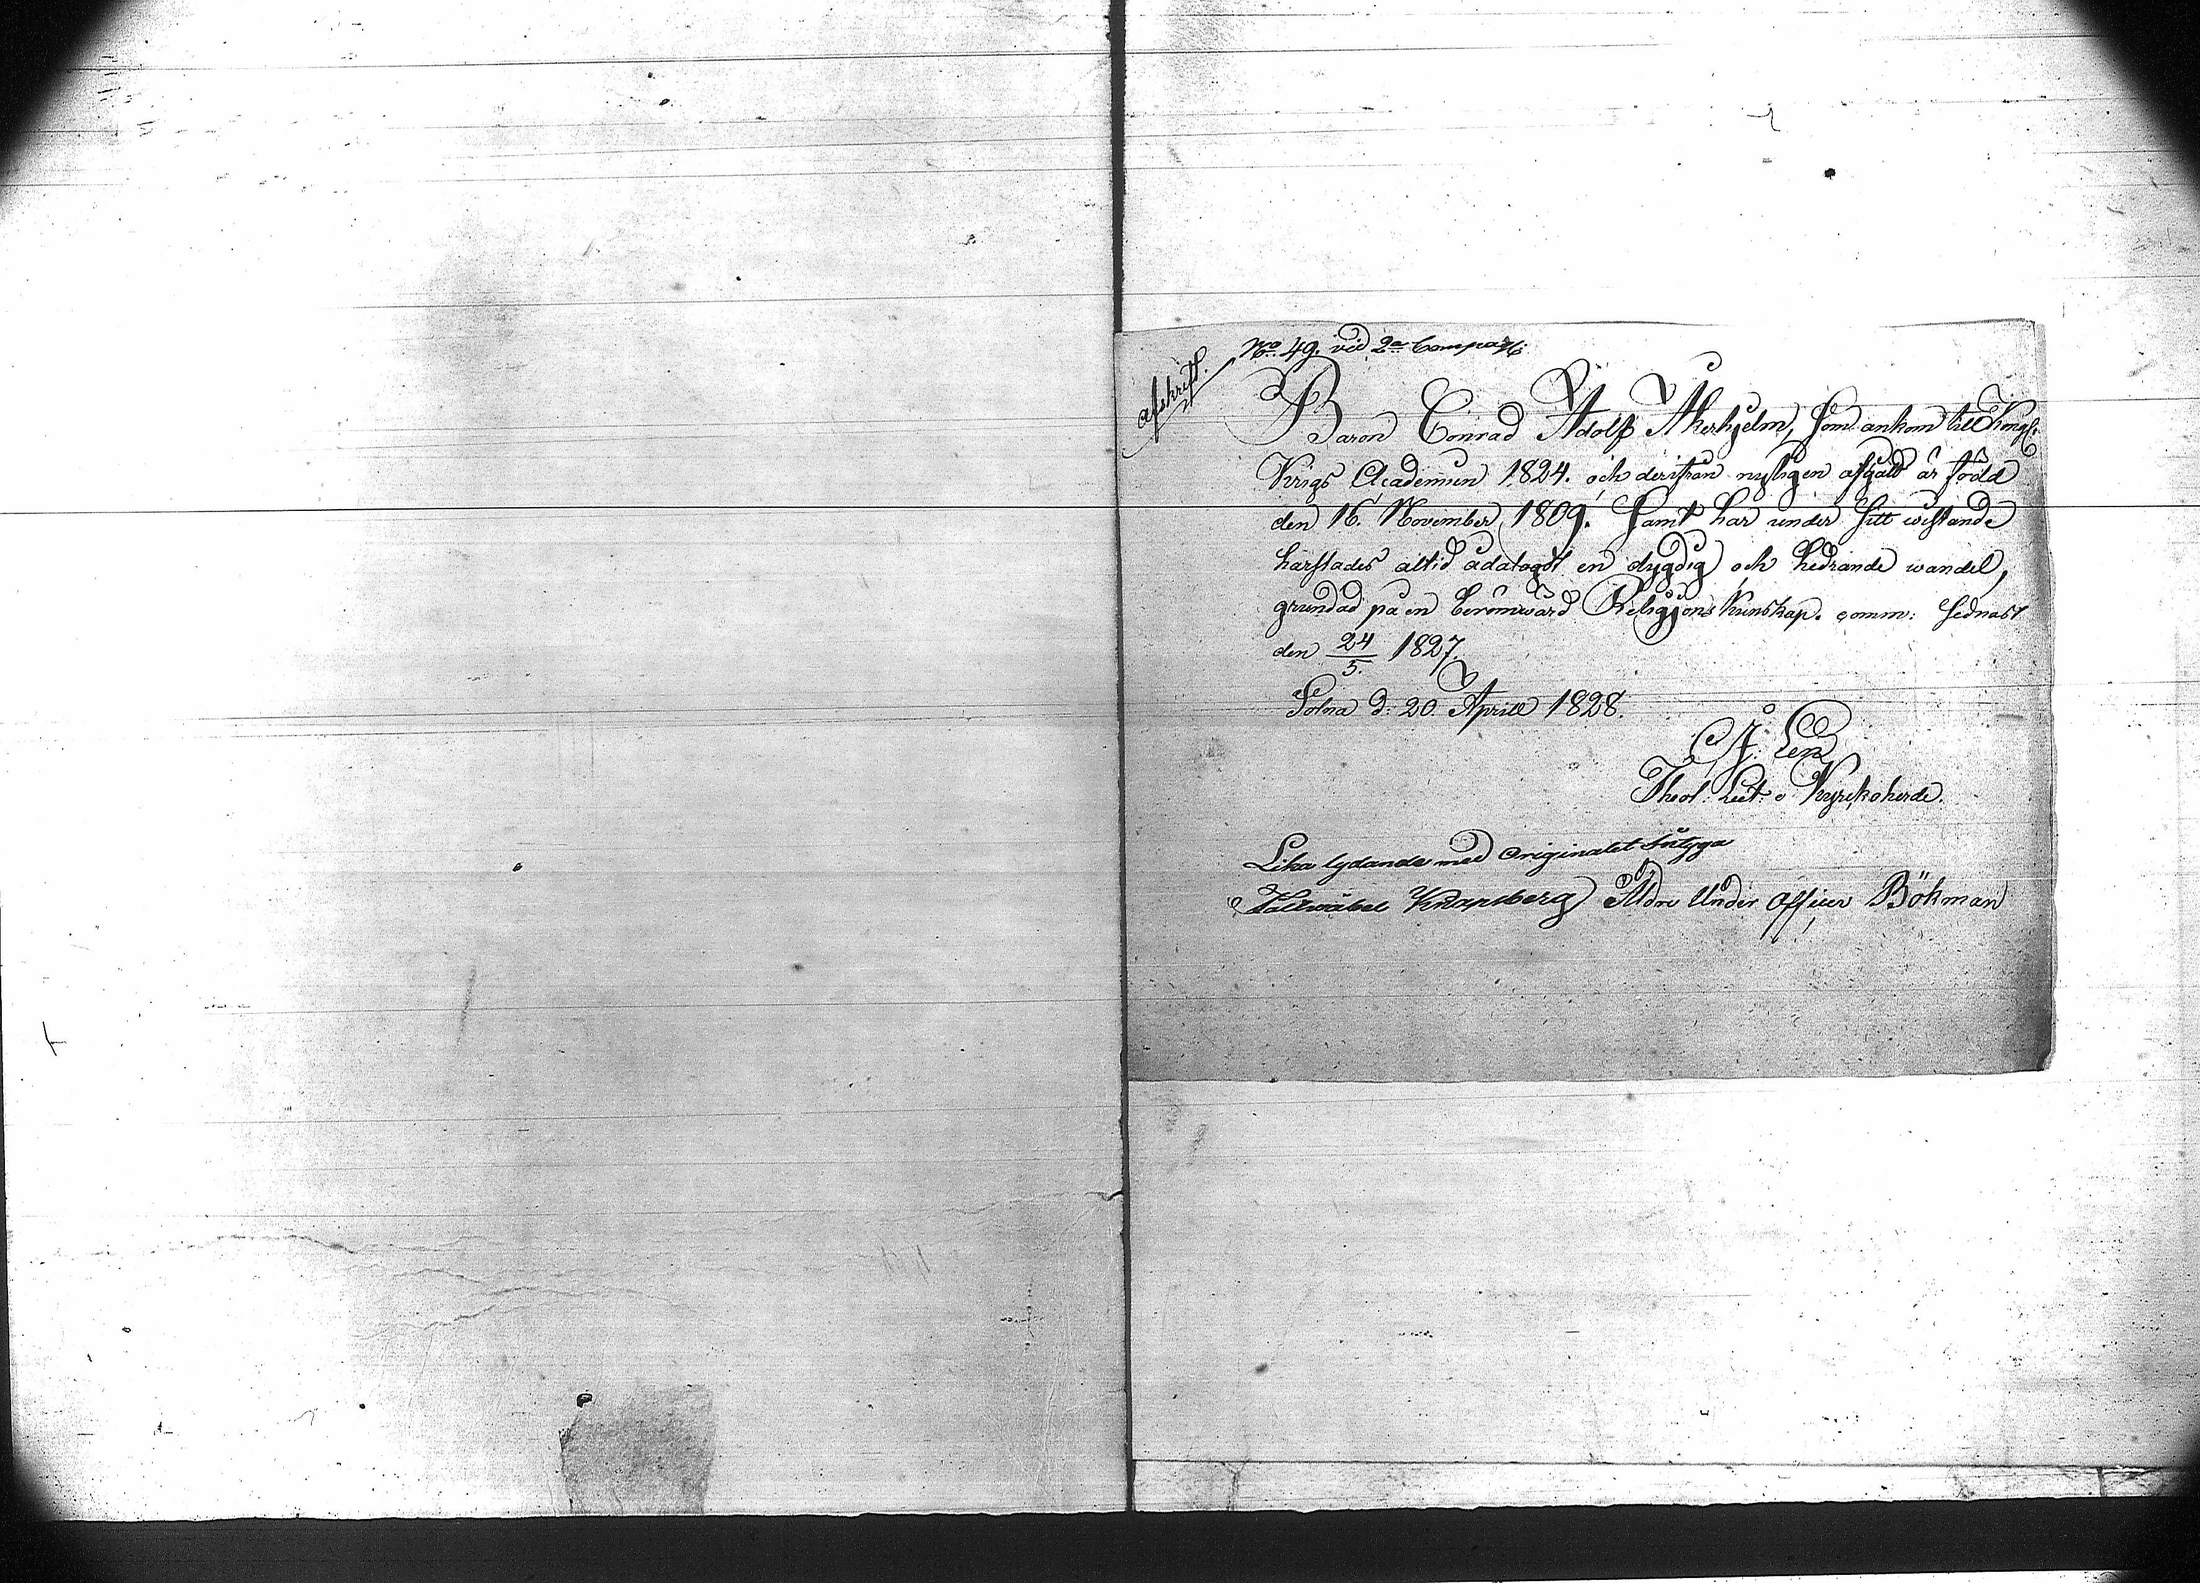 No. 49. vid 2a Compa
afskrift.
Baron Conrad Adolf Åkerhjelm, som ankom till Kongl.
Krigs Academien 1824. och derifrån nyligen afgått är född
den 16. November 1809. Samt har under sitt wistande
härstädes altid ådalagdt en dygdig och hedrande wandel,
grundad på en berömwärd Religions Kunskap. comm: sednast
den 24/5. 1827.
Solna d: 20. Aprill 1828.
Theol: Lect: o Kyrckoherde.
Lika lydande med Originalet intyga
Knapsberg Äldre Under Officer Bökman